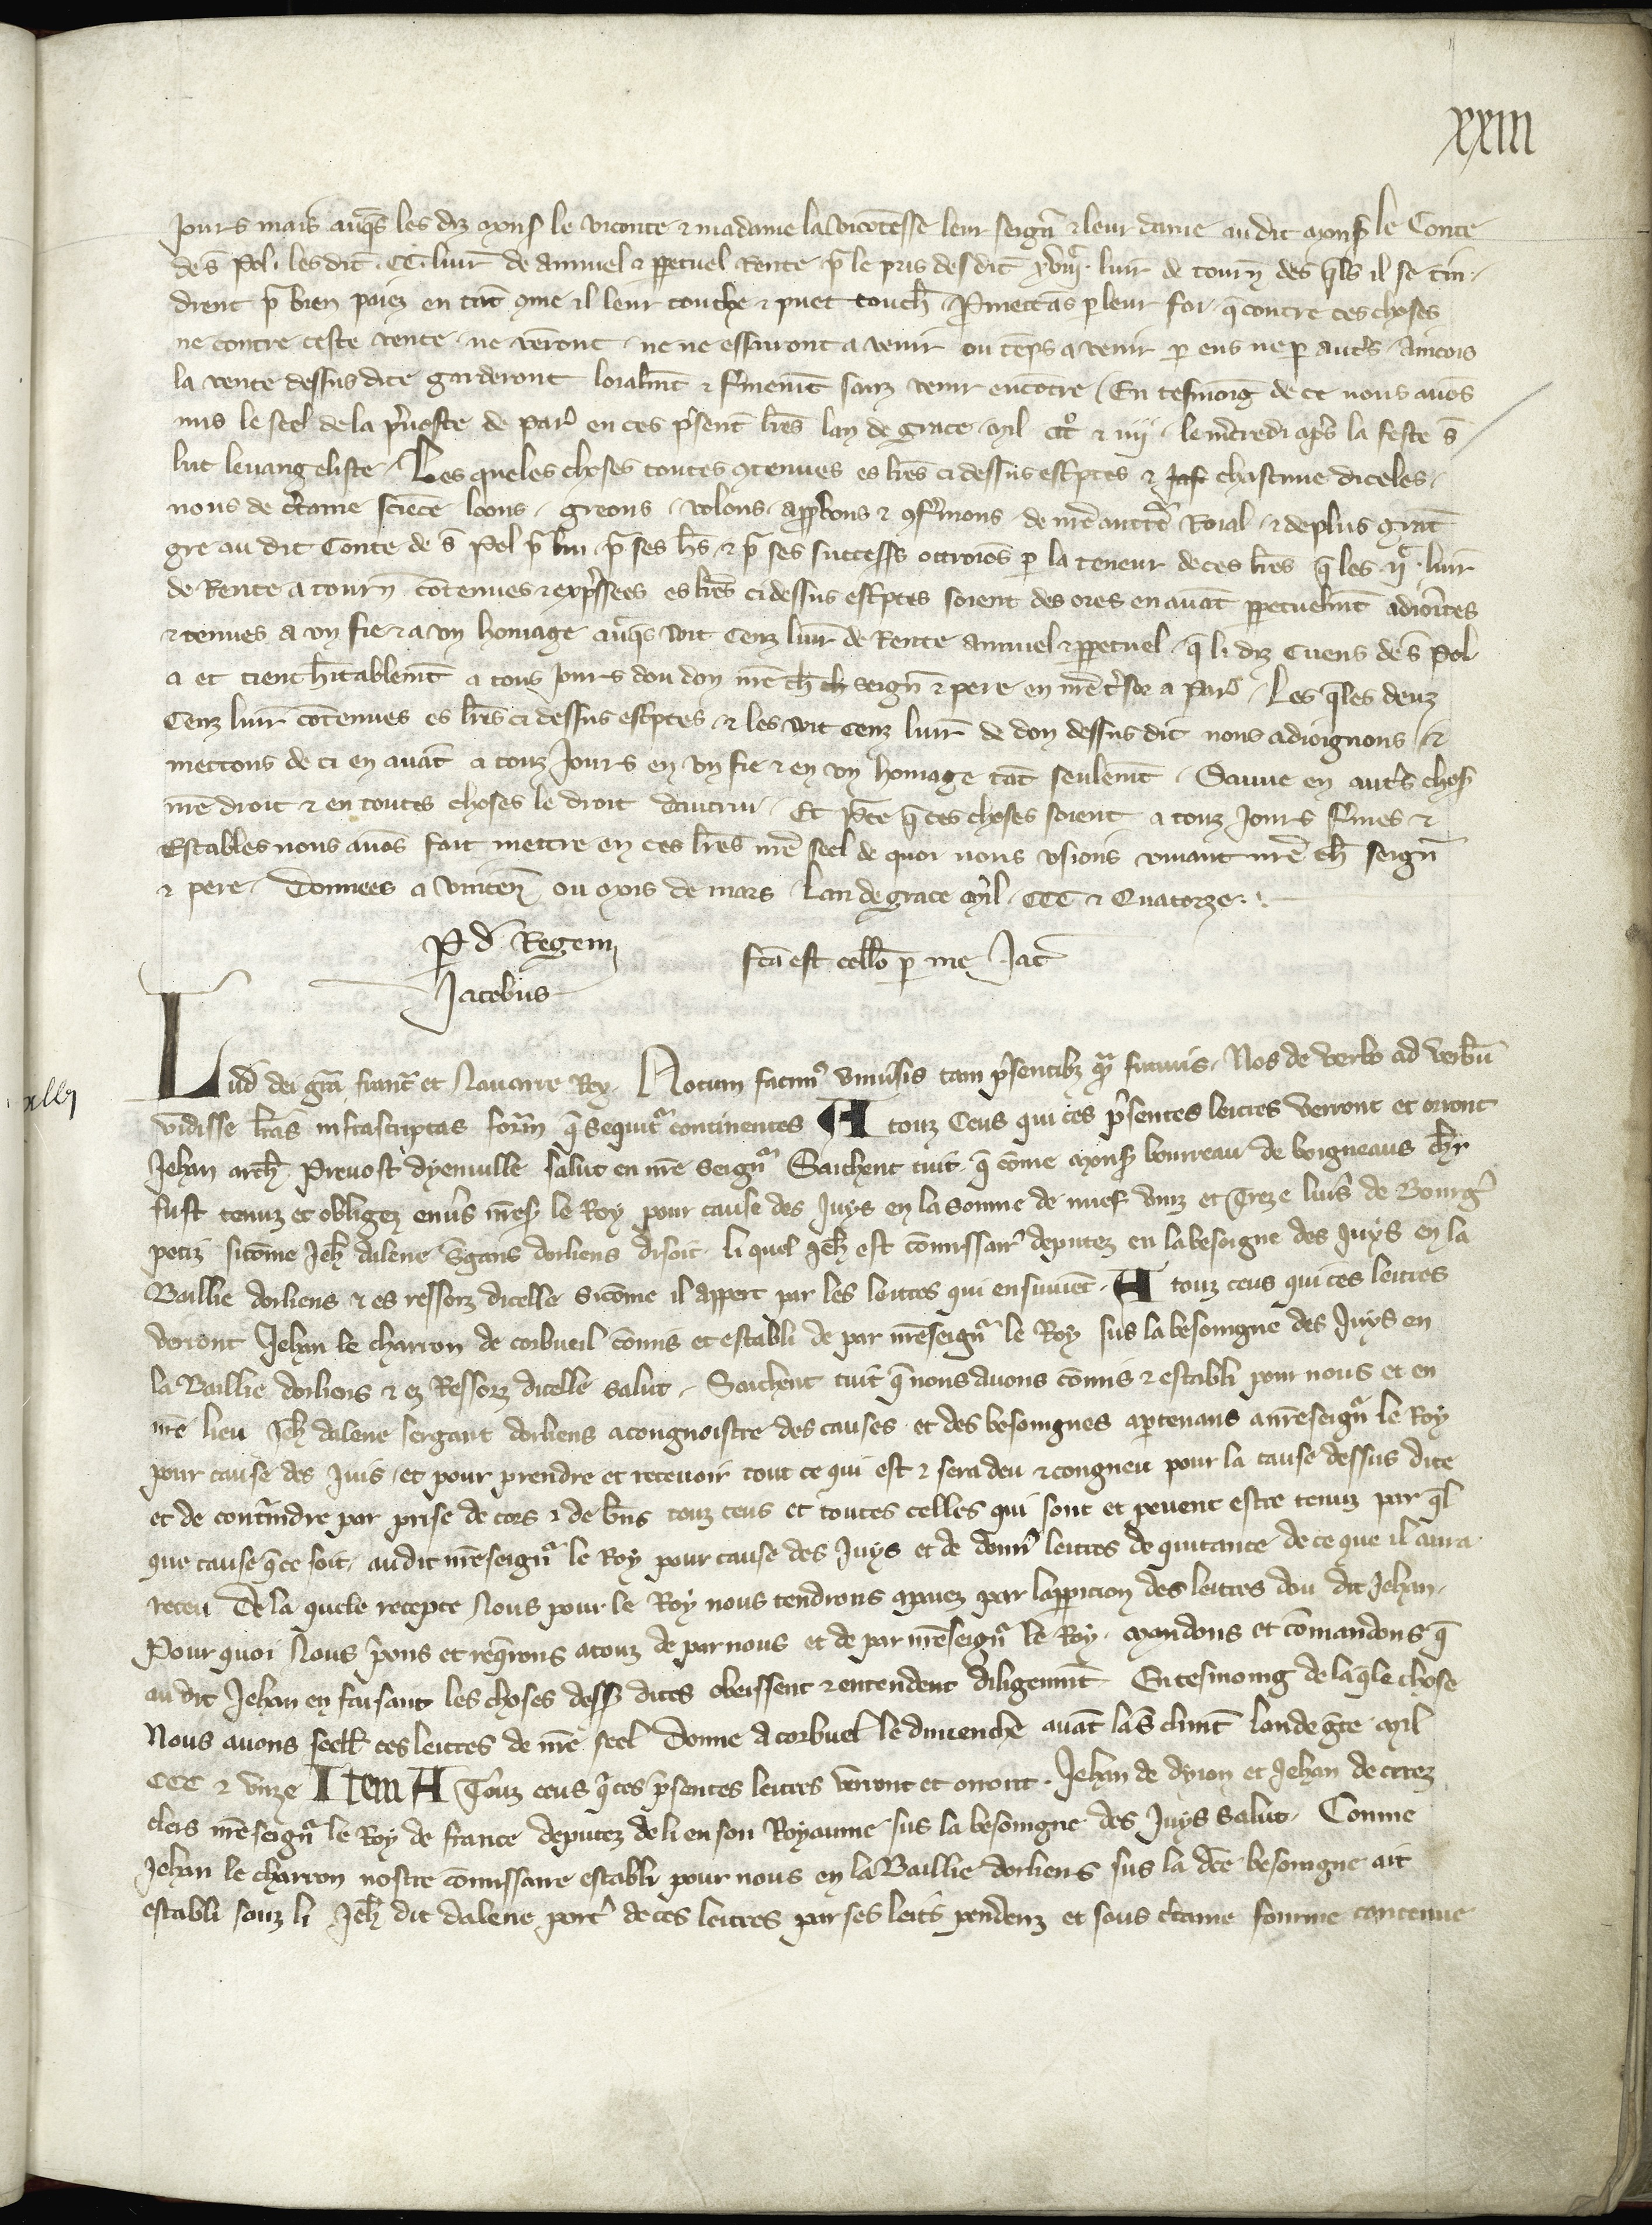 XXIII
Jours mais auqs les diz mons le viconte & madame la vicotesse leur seign & leur dame au dit mons le Conte
de s Pol les dit CC livr de annuel & ppetuel Rente pr le pris des dit livr de tourn des qls il se tin
drent pr bien paiez en tat gme il leur touche & puet touch Pmettas p leur foi q contre ces choses
ne contre ceste vente ne veront ne ne essaieront a venir ou teps a venir p eus ne p autrs Aincois
la vente dessus dite garderont loialmt & fmemt sanz venir encotre En tesmoig de ce nous avos
mis le seel de la pvoste de Par en ces psent lres lan de grace mil CCC & iiij le mcredi aps la feste s
luc levangeliste Les queles choses toutes gtenues es lres ci dessus escptes & chascune diceles
nous de ctaine sciece loons greons volons appvons & gfmons de nre auctte Roial & de plus grat
gre au dit Conte de s Pol pr lui pr ses hs & pr ses success ottroios p la teneur de ces lres q les ijc livr
de Rente a tourn cotenues & expssees es lres ci dessus escptes soient des ores en avat ppetuelmt adiointes
& tenues a un fie & a un homage avqs wit Cenz livr de Rente annuel & ppetuel q li diz Cuens de s Pol
a et tient hitablemt a tous jours dou don nre ch seign & pere en nre tsor a Par Les qles deuz
Cenz livr cotenues es lres ci dessus escptes & les wit cenz livr de don dessus dit nous adioignons &
mettons de ci en avat a touz Jours en un fie & en un homage tat seulemt Sauve en autrs chos
nre droit & en toutes choses le droit dautrui Et pce q ces choses soient a touz Jours fmes &
Estables nous avos fait mettre en ces lres nre seel de quoi nous usions vivant nre ch seign
& pere Donnees a Vincen ou mois de mars Lan de grace mil CCC & Quatorze
P d Regem
Jacobus
fca est collo p me Jac
Lud dei gra franc et Navarre Rex Notum facim univsis tam psentibz qm futuris Nos de verbo ad verbu
vidisse lras infrascriptas forma q sequit continentes A touz Ceus qui ces psentes lettres verront et orront
Jehan arch Prevost dyenville salut en nre seign Saichent tuit q come mons bourreau de boigneaus chr
fust tenuz et obligez envs nres le Roy pour cause des Juys en la somme de nuef vinz et Treze livrs de Bourg
petiz sicome Jeh dalene sgans dorliens disoit li quel Jeh est comissair deputez en la besoigne des Juys en la
Baillie dorliens & es ressorz dicelle sicome il appert par les lettres qui ensuivet A touz ceus qui ces lettres
verront Jehan le charron de corbueil comis et establi de par nreseign le Roy sus la besoingne des Juys en
la Baillie dorliens & ez Ressorz dicelle salut Saichent tuit q nous avons comis & establi pour nous et en
nre lieu Jeh dalene sergant dorliens a congnoistre des causes et des besoingnes aptenans a nreseign le Roy
pour cause des Juis et pour prendre et recevoir tout ce qui est & sera deu & congneu pour la cause dessus dite
et de contraindre par prise de cors & de bns touz ceus et toutes celles qui sont et pevent estre tenuz par ql
que cause q ce soit au dit nreseign le Roy pour cause des Juys et de donn lettres de quitance de ce que il aura
receu De la quele recepte Nous pour le Roy nous tendrons apaiez par lappicion des lettres dou dit Jehan
Pour quoi Nous pons et reqrons a touz de par nous et de par nreseign le Roy mandons et comandons q
au dit Jehan en faisant les choses dess dites obeissent & entendent diligemmt En tesmoing de la qle chose
Nous avons seell ces lettres de nre seel Donne a corbuel le dimenche avat la s climt lan de gce mil
CCC & unze Item A Touz ceus q ces psentes lettres verront et orront Jehan de dyion et Jehan de
clers nreseign le Roy de france deputez de li en son Royaume sus la besoingne des Juys salut Comme
Jehan le charron nostre comissaire establi pour nous en la Baillie dorliens sus la dce besoingne ait
establi souz li Jeh dit dalene port de ces lettres par ses lettrs pendenz et sous ctaine fourme contenue